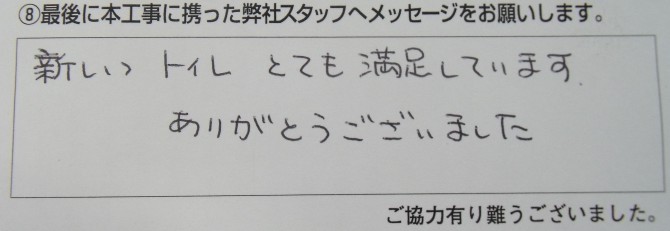 ⑧最後に本工事に携った弊社スタッフへメッセージをお願いします。
新しいトイレ とても満足しています
ありがとうございました
ご協力有り難うございました。